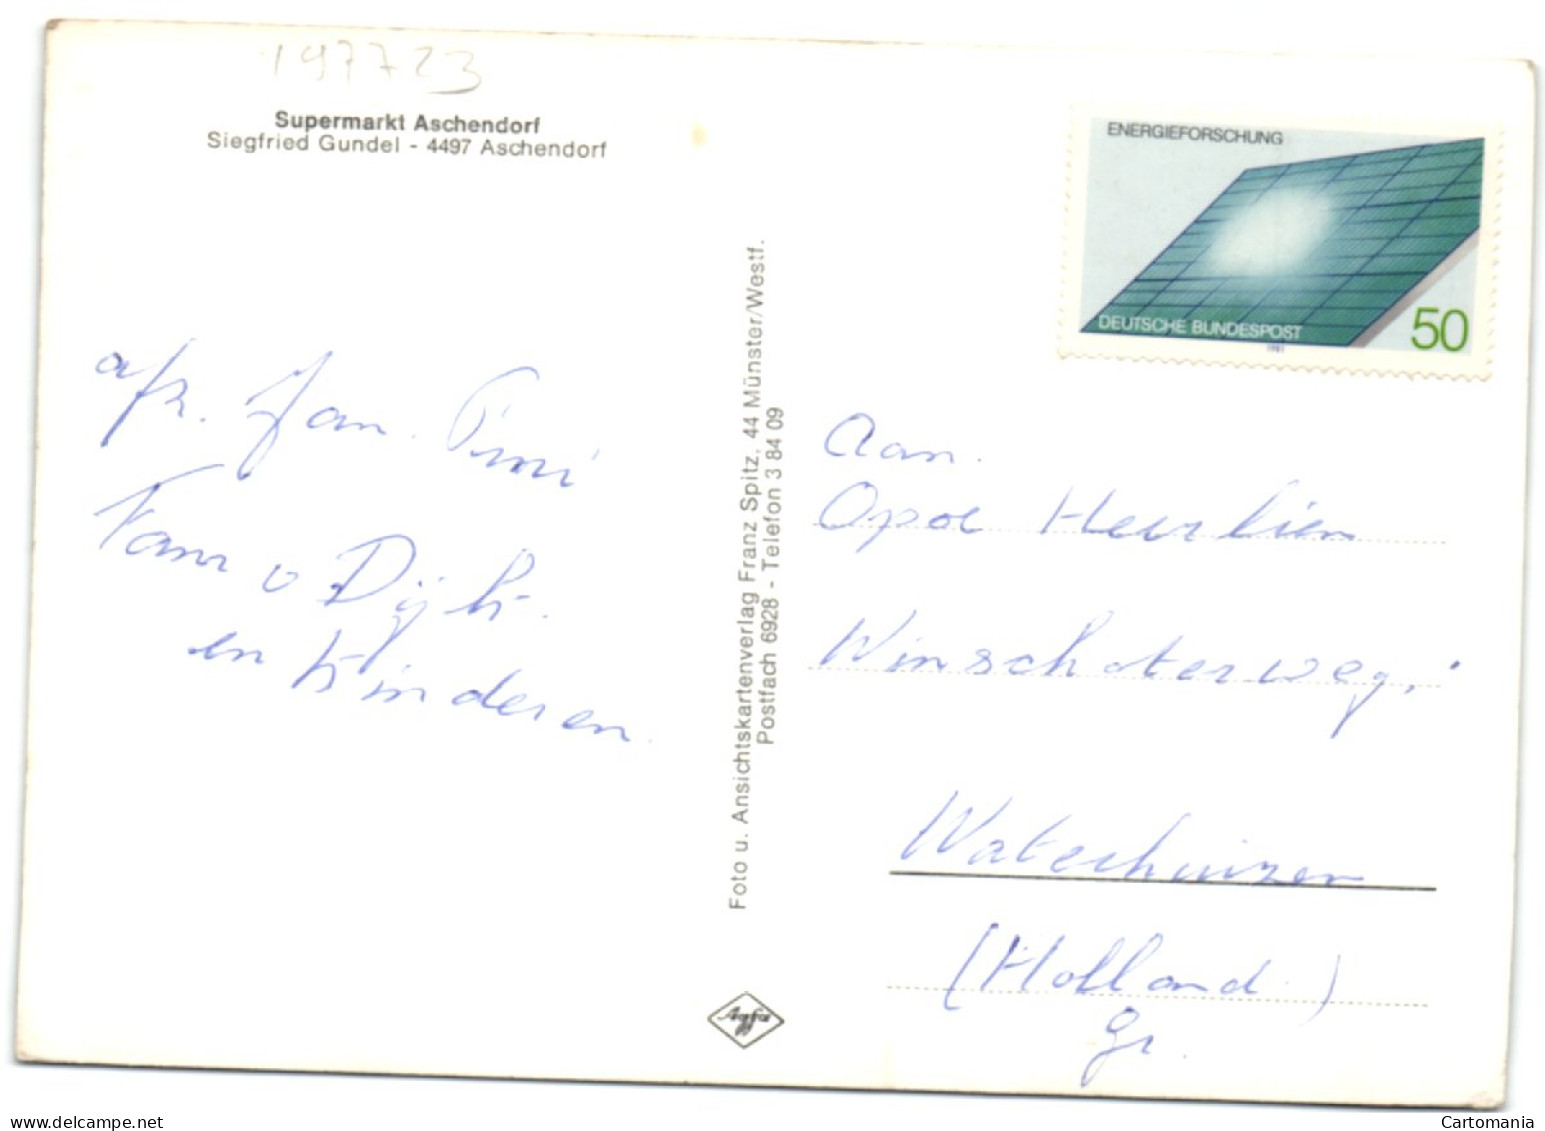 197723
Supermarkt Aschendorf
Siegfried Gundel - 4497 Aschendorf
ENERGIEFORSCHUNG
DEUTSCHE BUNDESPOST
1981
50
afz. Jan. Tini
Fam v Dijk.
en Kinderen.
Foto u. Ansichtskartenverlag Franz Spitz, 44 Münster/Westf.
Postfach 6928 - Telefon 3 84 09
Aan.
Opa
Winschoterweg.
Waterhuizen
(Holland)
Gr.
Agfa
delcampe.net
Cartomania